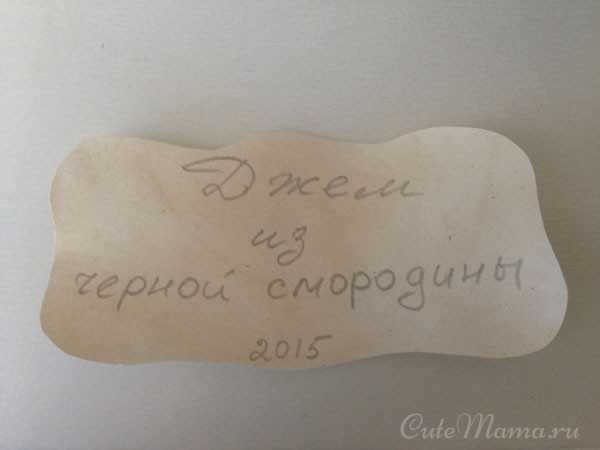 Джем
из
черной смородины
2015
CuteMama.ru